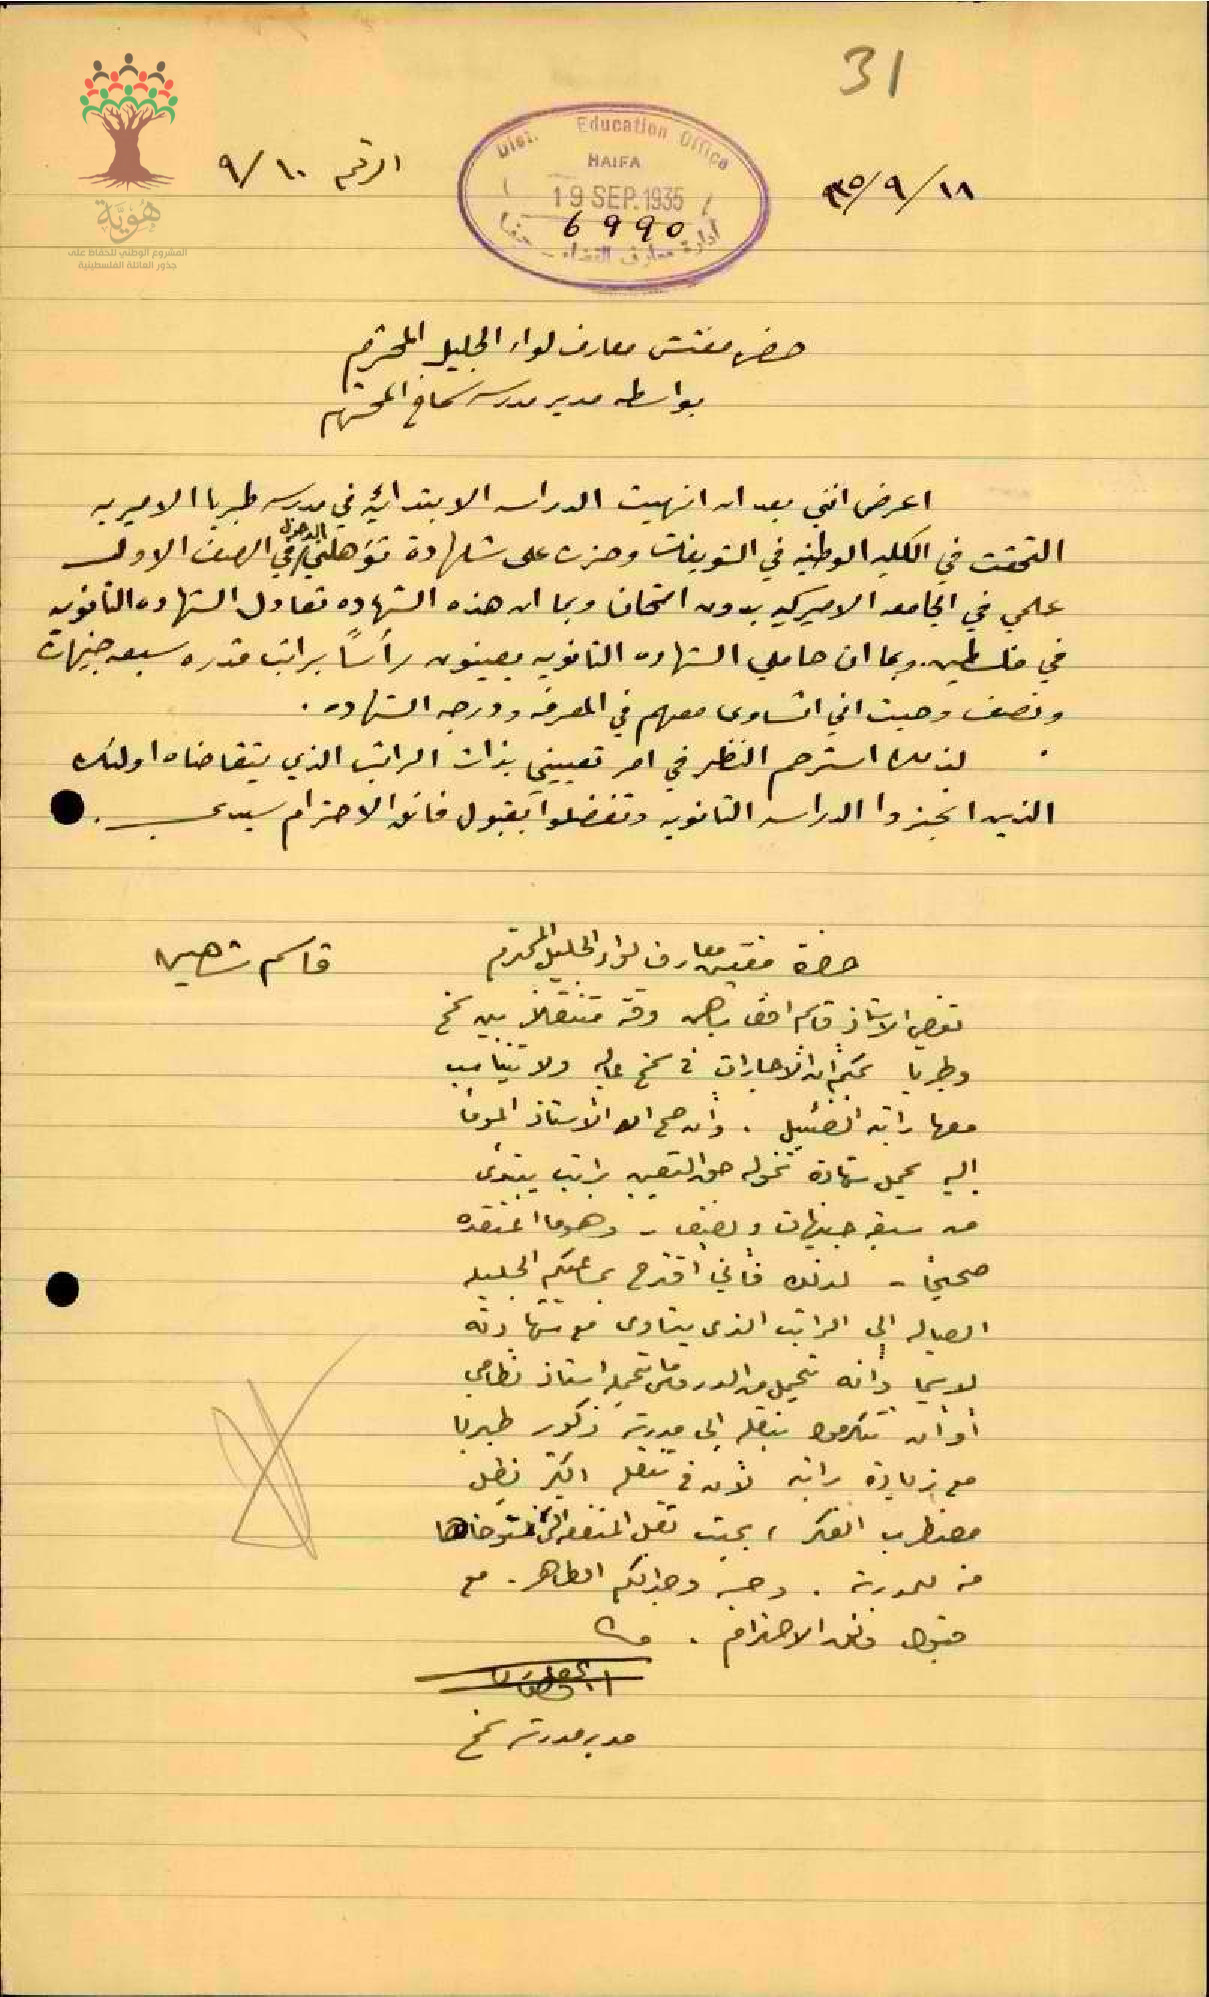 31
هُوِيَّة
المشروع الوطني للحفاظ على
جذور العائلة الفلسطينية
الرقم ٩/١٠
Dist. Education Office
HAIFA
19 SEP. 1935
6990
ادارة معارف القضاء - حيفا
٩٣٥/٩/١٨
حضرة مفتش معارف لواء الجليل المحترم
بواسطه مدير مدرسه سماخ المحترم
اعرض انني بعد ان انهيت الدراسه الابتدائية في مدرسه طبريا الاميريه
التحقت في الكليه الوطنيه في الشويفات وحزت على شهادة تؤهلني الدخول في الصف الاول
علمي في الجامعه الاميركيه بدون امتحان وبما ان هذه الشهاده تعادل الشهاده الثانويه
في فلسطين. وبما ان حاملي الشهاده الثانويه يعينون رأساً براتب قدره سبعه جنيهات
ونصف وحيث اني اتساوى معهم في المعرفه ودرجه الشهاده.
لذلك استرحم النظر في امر تعييني بذات الراتب الذي يتقاضاه اولئك
الذين انجزوا الدراسه الثانويه وتفضلوا بقبول فائق الاحترام سيدي.
قاسم شاهين
حضرة مفتش معارف لواء الجليل المحترم
الاستاذ قاسم وقته متنقلاً بين سمخ
وطبريا بحكم ان الاجارات في سمخ عاليه ولا تتناسب
معها راتبه الضئيل. وان صح ان الاستاذ الموما
اليه يحمل شهادة تخوله حق التعيين براتب يبتدئ
من سبعة جنيهات ونصف - وهو ما اعتقده
صحيحاً - لذلك فأني أقترح لجنابكم
ايصاله إلى الراتب الذي يتساوى مع شهادته
لا سيما وأنه يتحمل من الدروس ما يتحمله استاذ نظامي
أو أن تتكرموا بنقله إلى مدرسة ذكور طبريا
مع زيادة راتبه لأن في تنقله الكثير يظل
مضطرب الفكر، بحيث تقل المنفعه التي نتوخاها
منه للمدرسة. وجدانكم الطاهر. مع
قبول فائق الاحترام.
مدير مدرسة سمخ